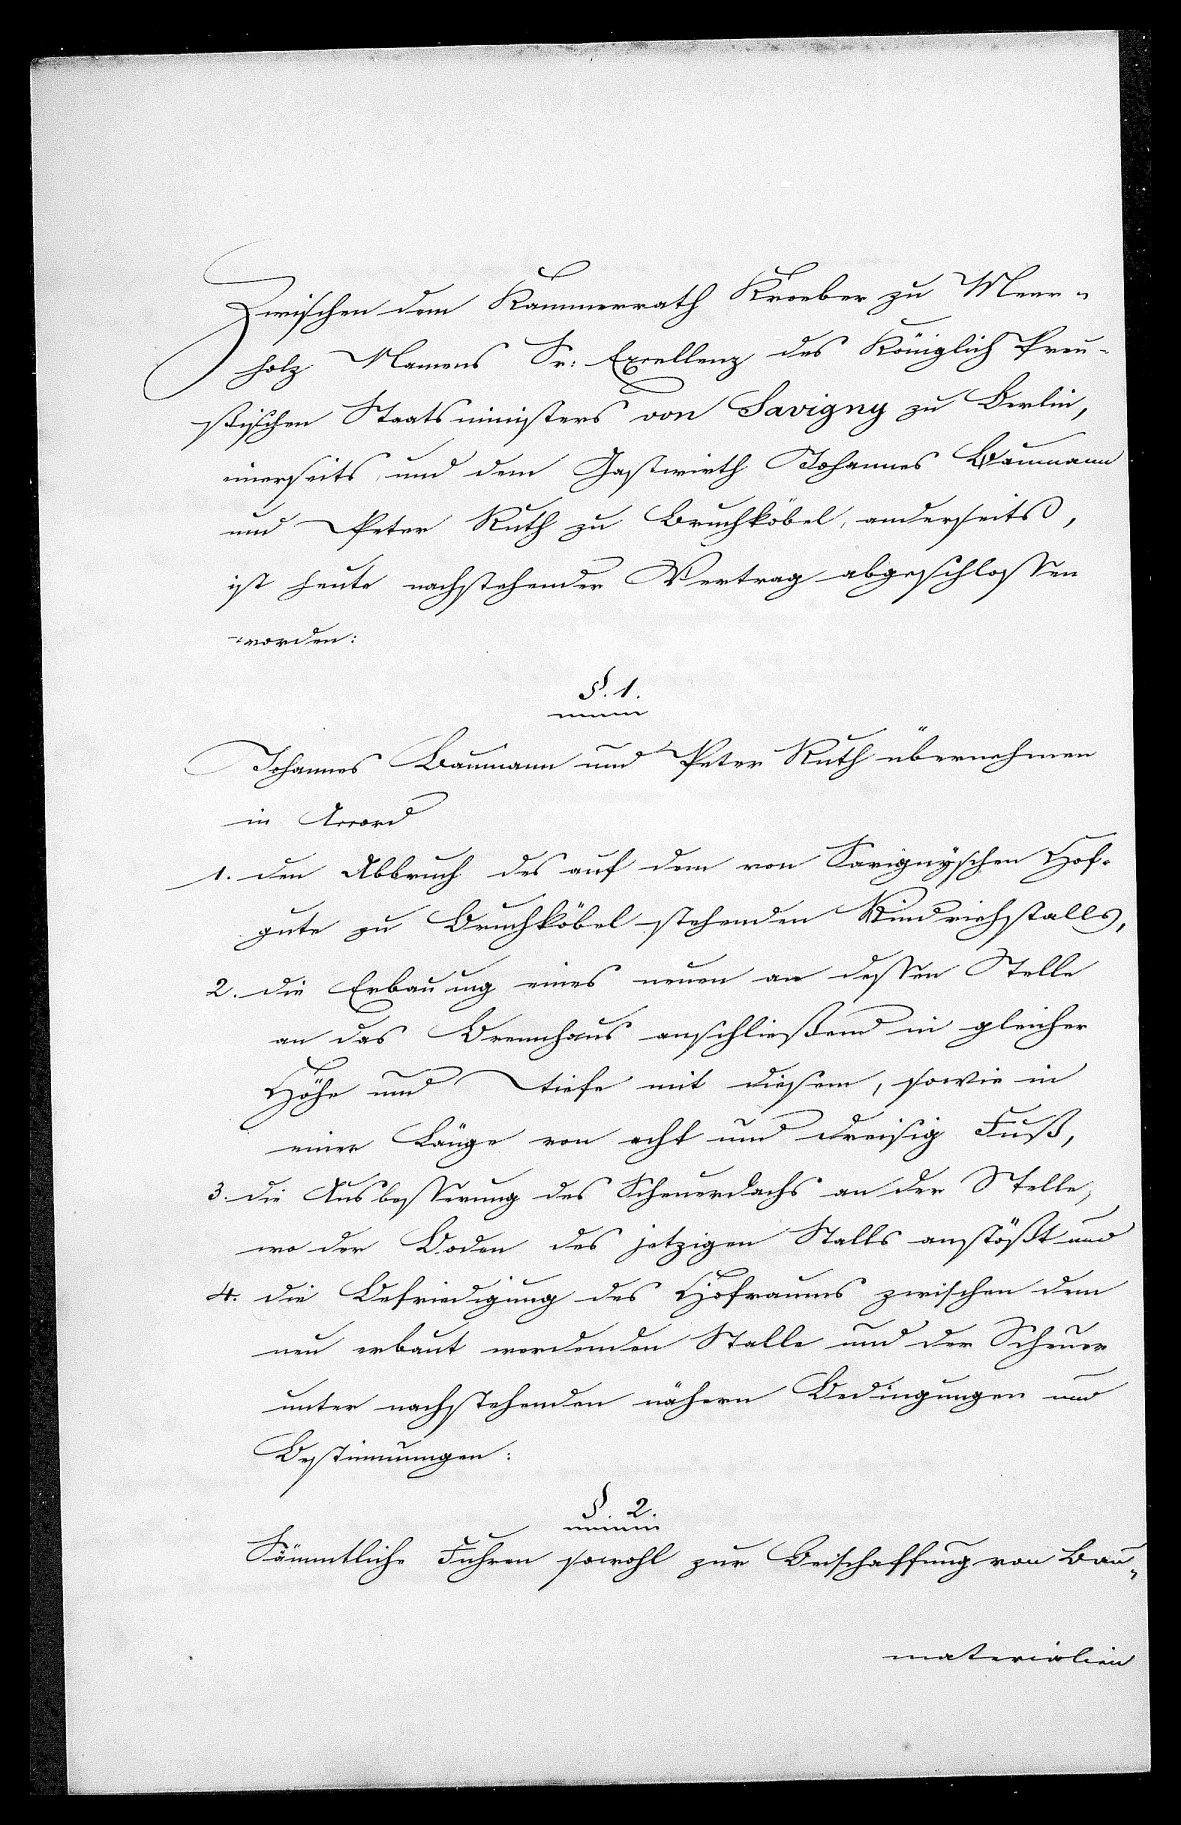 Zwischen dem Kammerrath Kroeber zu Meer-
holz Namens Sr: Excellenz des Königlich Preu-
ßischen Staatsministers von Savigny zu Berlin,
einerseits, und dem Gastwirth Johannes Baumann
und Peter Ruth zu Bruchköbel, anderseits,
ist heute nachstehender Vertrag abgeschlossen
worden:
§. 1.
Johannes Baumann und Peter Ruth übernehmen
in Accord
1. den Abbruch des auf dem von Savignyschen Hof-
gute zu Bruchköbel stehenden Rindviehstalls,
2. die Erbauung eines neuen an dessen Stelle
an das Brennhaus anschließend in gleicher
Höhe und Tiefe mit diesem, sowie in
einer Länge von acht und dreisig Fuß,
3. die Ausbesserung des Scheuerdachs an der Stelle,
wo der Boden des jetzigen Stalls anstößt und
4. die Befriedigung des Hofraums zwischen dem
neu erbaut werdenden Stalle und der Scheuer
unter nachstehenden nähern Bedingungen und
Bestimmungen:
§. 2.
Sämmtliche Fuhren sowohl zur Beischaffung von Bau-
materialien